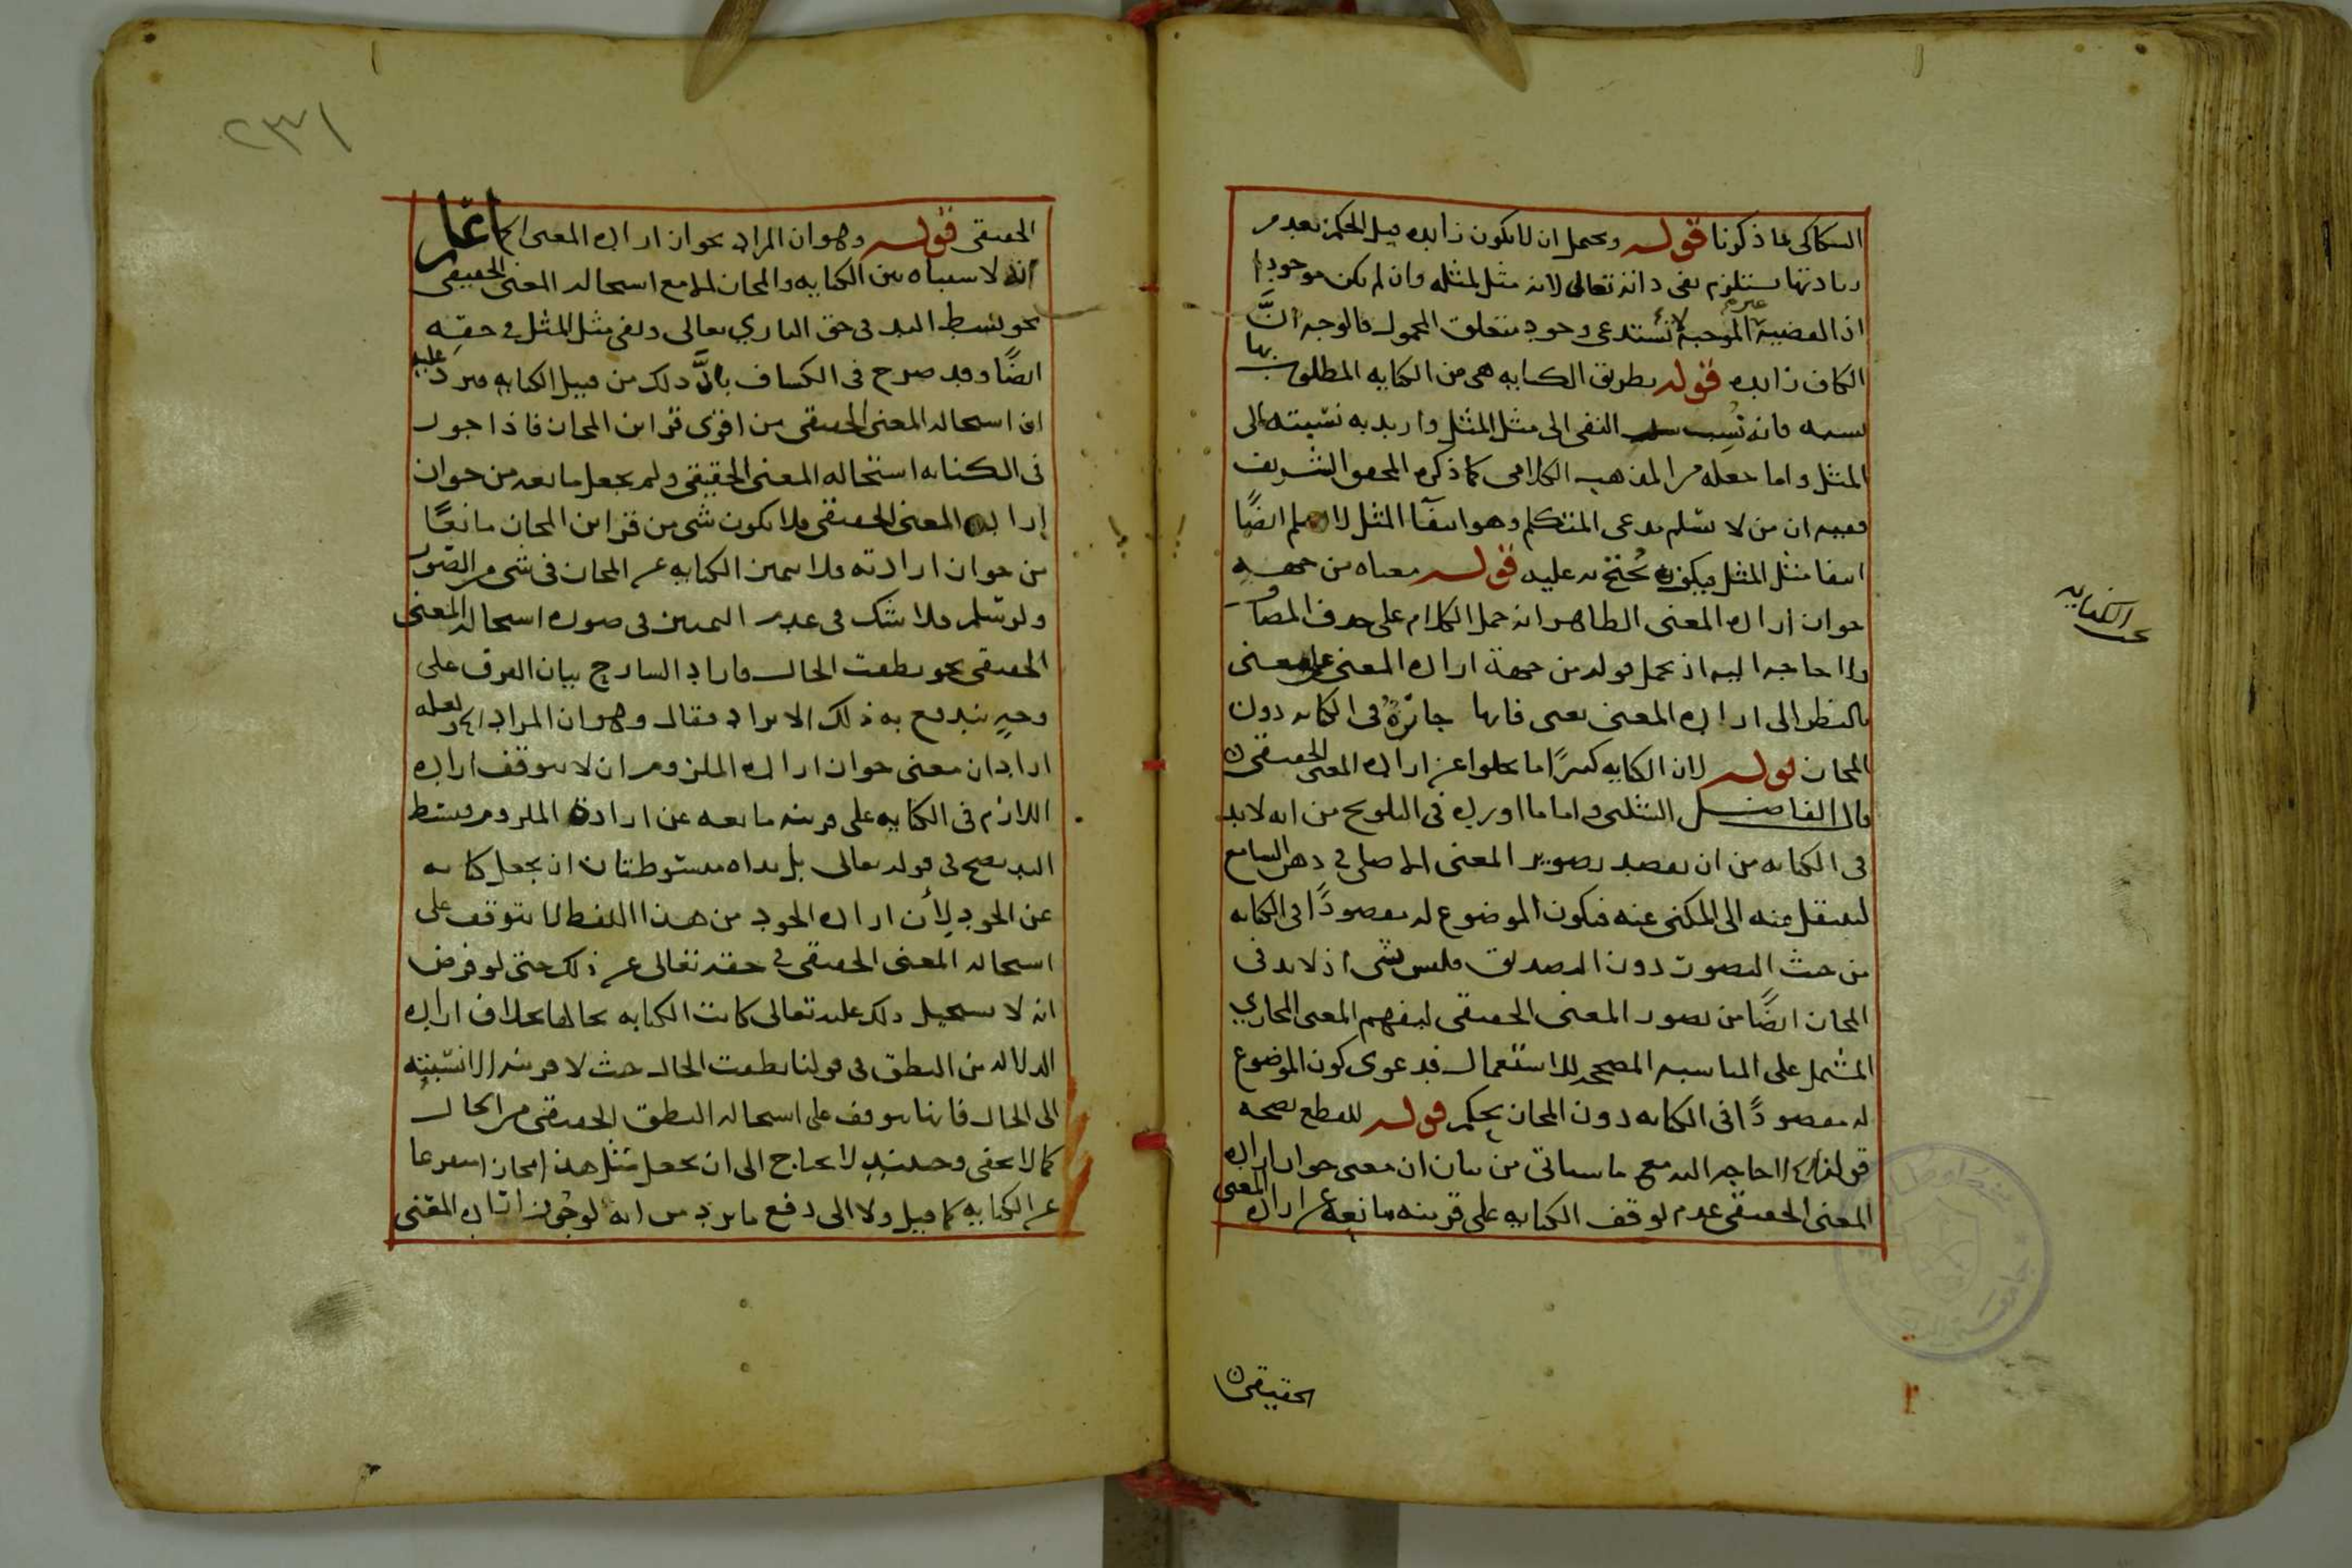 السكاكى بما ذكرنا قوله ويحتمل ان لا يكون زايده قيل الحكم بعدم
زيادتها يستلزم نفى ذاته تعالى لانه مثل لمثله وان لم يكن موجودا
اذ القضية الموجبة لا تستدعى وجود متعلق المحمول فالوجه انَّ
الكاف زايده قوله بطريق الكنايه هى من الكنايه المطلوب بها
نسبه فانه نُسِب النفى الى مثل المثل واريد به نسبته الى
المثل واما جعله من المذهب الكلامى كما ذكره المحقق الشريف
ففيه ان من لا يسلم مدعى المتكلم وهو انتفآ المثل لا يسلم ايضًا
انتفا مثل المثل فيكون يُحتج به عليه قوله معناه من جهة
جواز اراده المعنى الظاهر انه حمل الكلام على حذف المضاف
ولا حاجه اليه اذ يحمل قوله من جهة اراده المعنى على معنى
بالنظر الى اراده المعنى يعنى فانها جائزةٌ فى الكنايه دون
المجاز قوله لان الكنايه كثيرًا ما تخلوا عن اراده المعنى الحقيقى
قال الفاضل الشلبى واما ما اورده فى التلويح من انه لابد
فى الكنايه من ان يقصد تصوير المعنى الاصلى فى ذهن السامع
لينتقل منه الى المكنى عنه فيكون الموضوع له مقصودًا فى الكنايه
من حيث التصور دون التصديق فليس بشى اذ لا بد فى
المجاز ايضًا من تصور المعنى الحقيقى ليفهم المعنى المجازي
المشتمل على المناسبه المصححه للاستعمال فدعوى كون الموضوع
له مقصودًا فى الكنايه دون المجاز تحكم قوله للقطع بصحه
قولنا الخ لا حاجه اليه مع ما سياتى من بيان ان معنى جواز اراده
المعنى الحقيقى عدم توقف الكنايه على قرينه مانعة عن اراده المعنى
الحقيقى
بحث الكنايه
٢٣١
الحقيقى قوله وهو ان المراد بجواز اراده المعنى الخ اعلم
انه لا اشتباه بين الكنايه والمجاز الا مع استحاله المعنى الحقيقى
نحو بسط اليد فى حق الباري تعالى ونفى مثل المثل فى حقه
ايضًا وقد صرح فى الكشاف بانَّ ذلك من قبيل الكنايه فيرد عليه
ان استحاله المعنى الحقيقى من اقوى قراين المجاز فاذا جوز
فى الكنايه استحاله المعنى الحقيقى ولم يجعل مانعه من جواز
اراده المعنى الحقيقى فلا يكون شى من قراين المجاز مانعًا
من جواز ارادته فلا تتميز الكنايه عن المجاز فى شى من الصور
ولو سلم فلا شك فى عدم التميز فى صوره استحاله المعنى
الحقيقى نحو نطقت الحال فاراد الشارح بيان الفرق على
وجهٍ يندفع به ذلك الايراد فقال وهو ان المراد الخ ولعله
اراد ان معنى جواز اراده الملزوم ان لا يتوقف اراده
اللازم فى الكنايه على قرينه مانعه عن ارادة الملزوم فبسط
اليد يصح فى قوله تعالى بل يداه مبسوطتان ان يجعل كنايه
عن الجود لأن اراده الجود من هذا اللفظ لا يتوقف على
استحاله المعنى الحقيقى فى حقه تعالى عن ذلك حتى لو فرض
انه لا يستحيل ذلك عليه تعالى كانت الكنايه بحالها بخلاف اراده
الدلاله من النطق فى قولنا نطقت الحال حيث لا قرينه الا نسبته
الى الحال فانها يتوقف على استحاله النطق الحقيقى من الحال
كما لا يخفى وحينئذٍ لا يحتاج الى ان يجعل مثل هذا مجازا متفرعا
عن الكنايه كما قيل ولا الى دفع ما يرد من انه لو جوز اراده المعنى